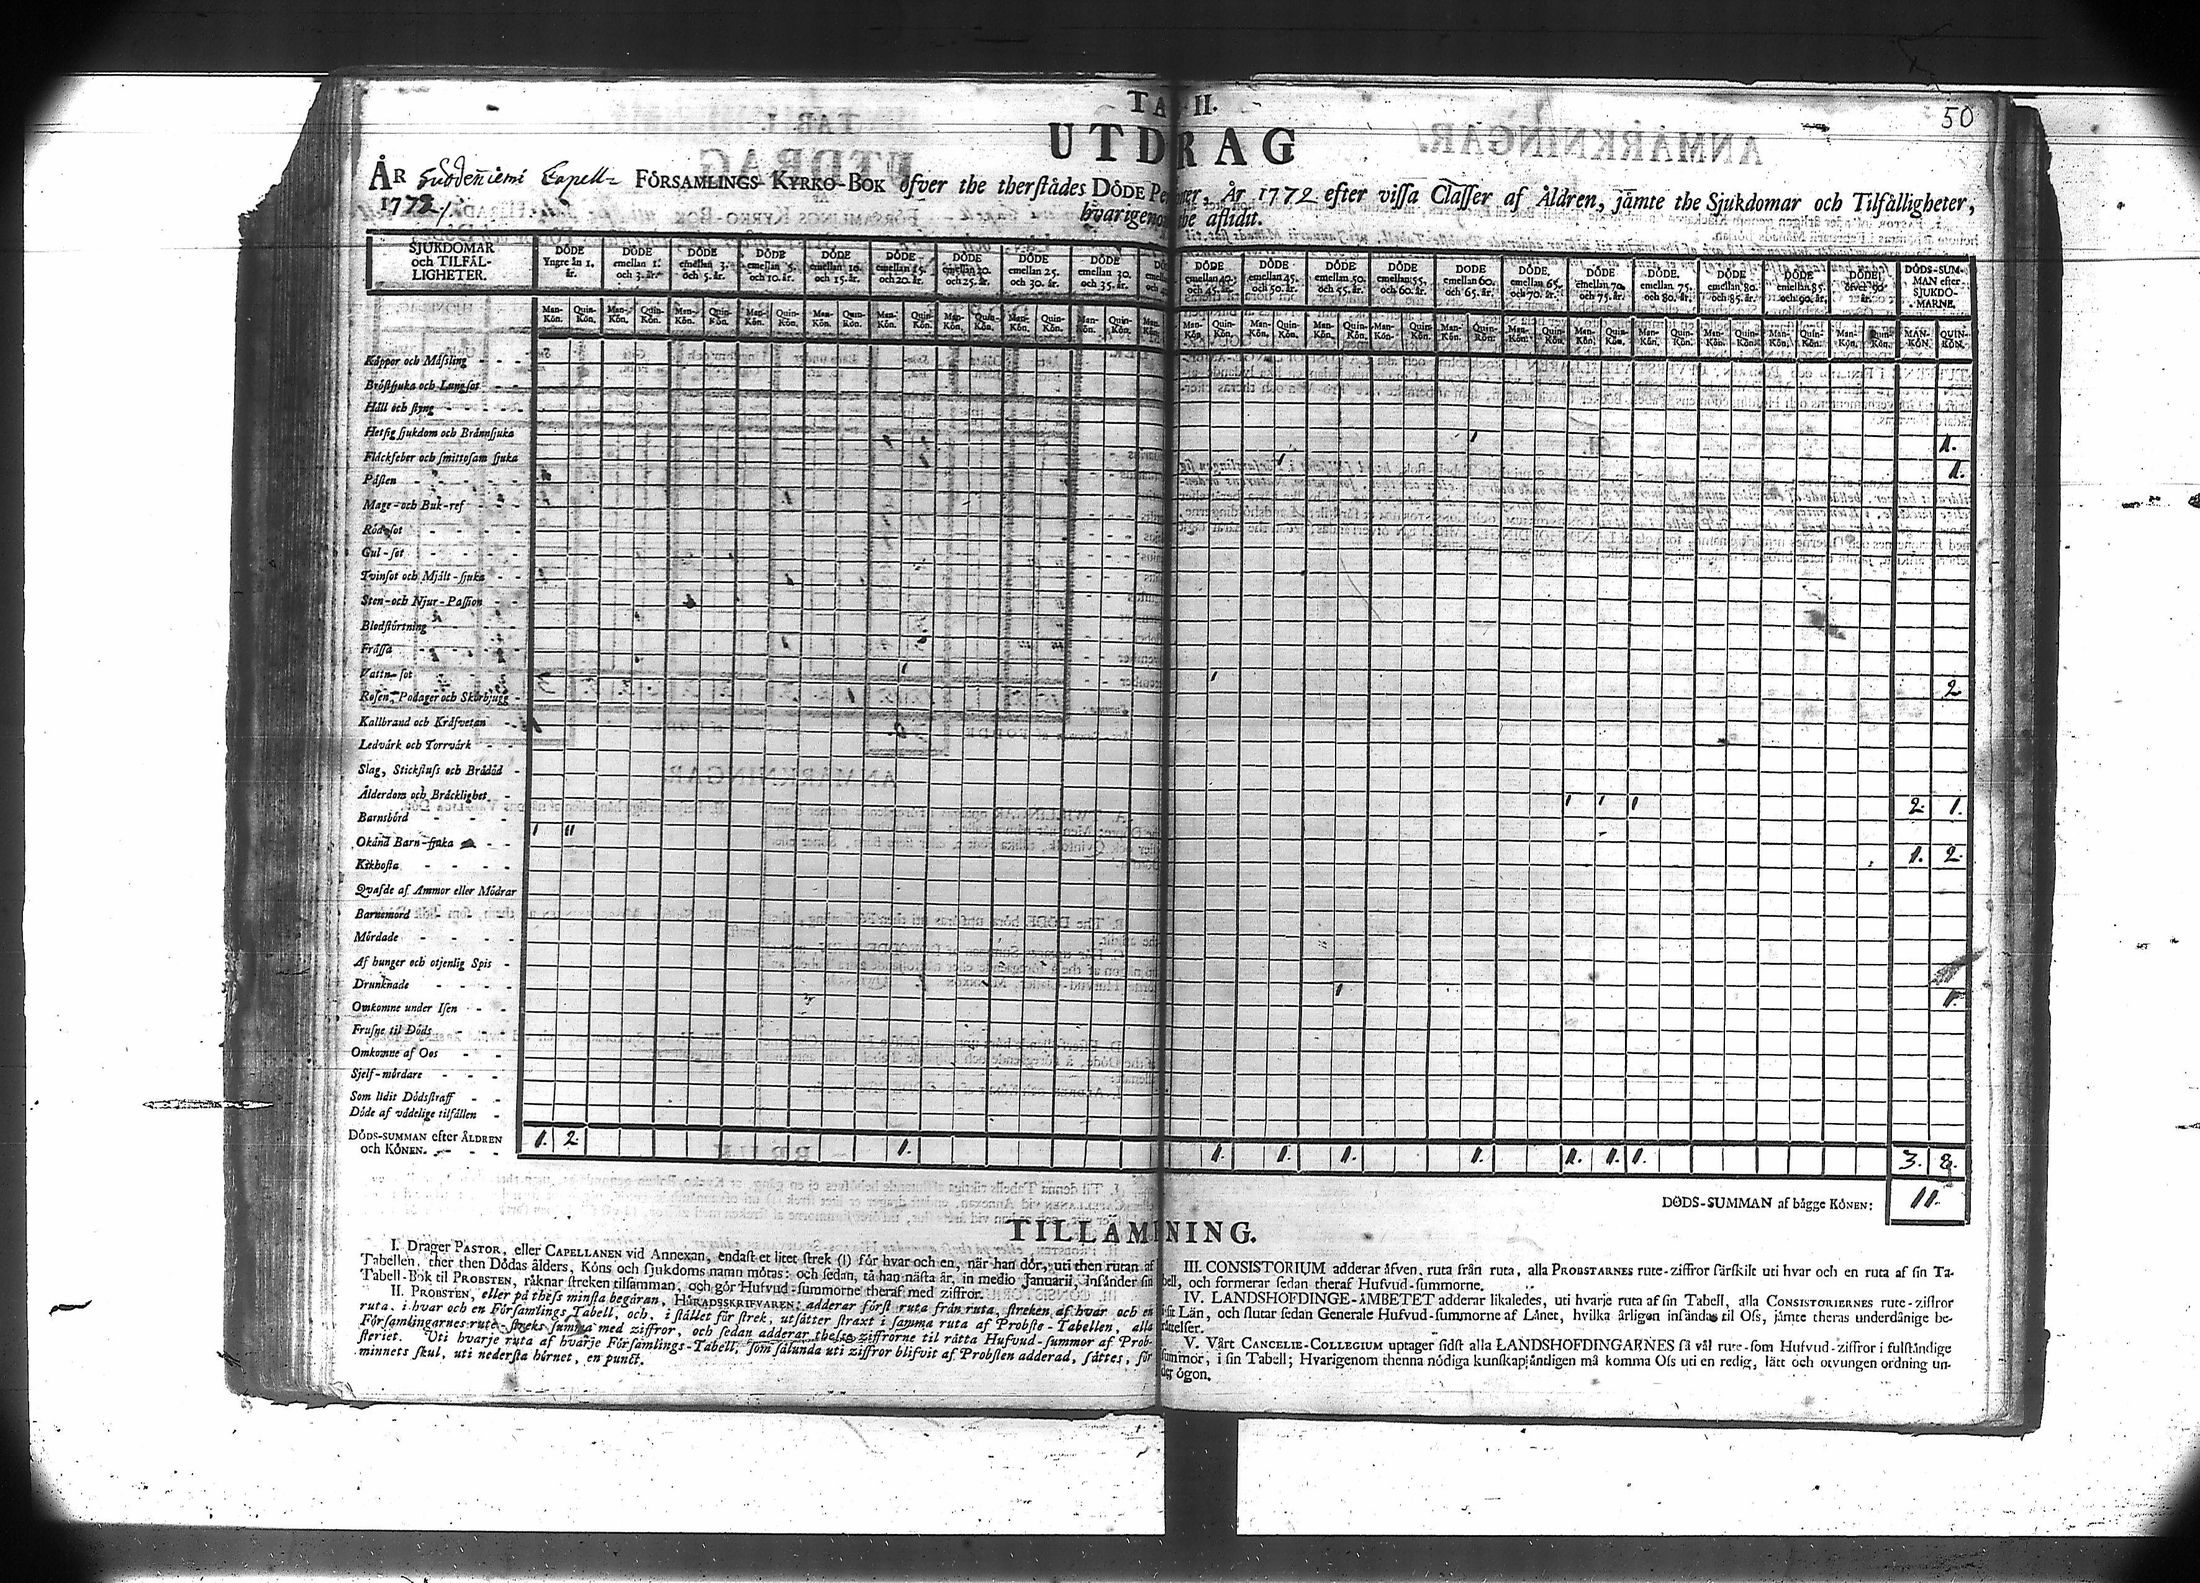 TA II.
50
UTDRAG
ÅR Suodenniemi Capell- FÖRSAMLINGS-KYRKO-BOK öfver the therstädes DÖDE Pe ner, År 1772 efter vissa Classer af Åldren, jämte the Sjukdomar och Tilfälligheter,
1772/ hvarigeno the aflidit.
SJUKDOMAR och TILFÄLLIGHETER.
DÖDE Yngre än 1. år.
DÖDE emellan 1. och 3. år.
DÖDE emellan 3. och 5. år.
DÖDE emellan 5. och 10. år.
DÖDE emellan 10. och 15. år.
DÖDE emellan 15. och 20. år.
DÖDE emellan 20. och 25. år.
DÖDE emellan 25. och 30. år.
DÖDE emellan 30. och 35. år.
DÖDE emellan 40. och 45. år.
DÖDE emellan 45. och 50. år.
DÖDE emellan 50. och 55. år.
DÖDE emellan 55. och 60. år.
DÖDE emellan 60. och 65. år.
DÖDE. emellan 65. och 70. år.
DÖDE emellan 70. och 75. år.
DÖDE. emellan 75. och 80. år.
DÖDE emellan 80. och 85. år.
DÖDE emellan 85. och 90. år.
DÖDE öfver 90 år.
DÖDS-SUMMAN efter SJUKDOMARNE.
Man-Kön. Quin-Kön. Man-Kön. Quin-Kön. Man-Kön. Quin-Kön. Man-Kön. Quin-Kön. Man-Kön. Quin-Kön. Man-Kön. Quin-Kön. Man-Kön. Quin-Kön. Man-Kön. Quin-Kön. Man-Kön. Quin-Kön. Man-Kön. Man-Kön. Quin-Kön. Man-Kön. Quin-Kön. Man-Kön. Quin-Kön. Man-Kön. Quin-Kön. Man-Kön. Quin-Kön. Man-Kön. Quin-Kön. Man-Kön. Quin-Kön. Man-Kön. Quin-Kön. Man-Kön. Quin-Kön. Man-Kön. Quin-Kön. Man-Kön. Quin-Kön. MAN-KÖN. QUIN-KÖN.
Koppor och Mässling - - -
Bröstsjuka och Lungsot - -
Håll och styng - - - -
Hetsig sjukdom och Brännsjuka 1 1.
Fläckfeber och smittosam sjuka 1 1.
Pästen - - - - -
Mage- och Buk-ref - - -
Rödsot - - - -
Gul-sot - - - -
Tvinsot och Mjält-sjuka - -
Sten- och Njur-Passion - -
Blodstörtning - - -
Frässa - - - - -
Vattu-sot - - - 1 1 2
Rosen, Podager och Skörbjugg -
Kallbrand och Kräfvetan - -
Ledvärk och Torrvärk - -
Slag, Stickfluss och Brådöd -
Ålderdom och Bräcklighet - 1 1 1 2 1.
Barnsbörd - - - -
Okänd Barn-sjuka - - 1 11 1. 2.
Kikhosta - - - -
Qvafde af Ammor eller Mödrar
Barnemord - - - -
Mördade - - - -
Af hunger och otjenlig Spis -
Drunknade - - - - 1 1.
Omkomne under Isen - -
Frusne til Döds - - -
Omkomne af Oos - -
Sjelf-mördare - - -
Som lidit Dödsstraff - -
Döde af vådelige tilfällen -
DÖDS-SUMMAN efter ÅLDREN
och KÖNEN. - - - 1. 2. 1. 1. 1. 1. 1. 1. 1. 1. 3. 8.
DÖDS-SUMMAN af bägge KÖNEN: 11.
TILLÄMNING.
I. Drager PASTOR, eller CAPELLANEN vid Annexan, endast et litet strek (I) för hvar och en, när han dör, uti then rutan af
Tabellen, ther then Dödas ålders, Köns och sjukdoms namn mötas: och sedan, tå han nästa år, in medio Januarii, insänder sin
Tabell-Bok til PROBSTEN, räknar streken tilsamman, och gör Hufvud-summorne theraf med ziffror.
II. PROBSTEN, eller på thess minsta begäran, HÄRADSSKRIFVAREN: adderar först ruta från ruta, streken af hvar och en
ruta, i hvar och en Församlings Tabell, och, i stället för strek, utsätter straxt i samma ruta af Probste-Tabellen, alla
Församlingarnes rute-streks summa med ziffror, och sedan adderar thessa ziffrorne til rätta Hufvud-summor af Prob-
steriet. Uti hvarje ruta af hvarje Församlings-Tabell, som sålunda uti ziffror blifvit af Probsten adderad, sättes, för
minnets skul, uti nedersta hörnet, en punct.
III. CONSISTORIUM adderar äfven, ruta från ruta, alla PROBSTARNES rute-ziffror särskilt uti hvar och en ruta af sin Ta-
bell, och formerar sedan theraf Hufvud-summorne.
IV. LANDSHOFDINGE-ÄMBETET adderar likaledes, uti hvarje ruta af sin Tabell, alla CONSISTORIERNES rute-ziffror
i sit Län, och slutar sedan Generale Hufvud-summorne af Länet, hvilka årligen insändas til Oss, jämte theras underdånige be-
rättelser.
V. Vårt CANCELIE-COLLEGIUM uptager sidst alla LANDSHOFDINGARNES så väl rute-som Hufvud-ziffror i fulständige
summor, i sin Tabell; Hvarigenom thenna nödiga kunskap äntligen må komma Oss uti en redig, lätt och otvungen ordning un-
der ögon.